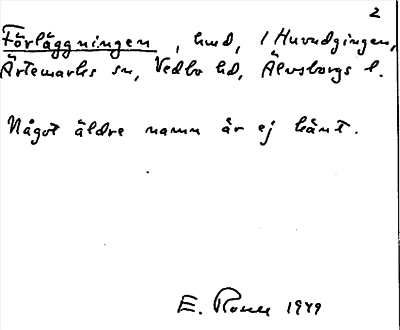 2
Förläggningen, hmd, 1 Huvudgingen,
Ärtemarks sn, Vedbo hd, Älvsborgs l.
Något äldre namn är ej känt.
E. 1949